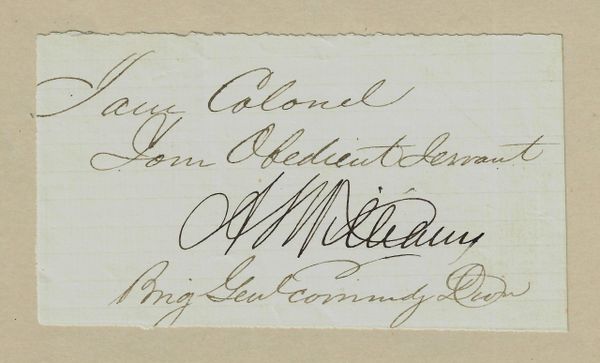 I am Colonel
Your Obedient Servant
A S Williams
Brig Genl commdg Divn